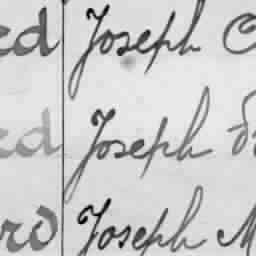 ed Joseph
ed Joseph
ro Joseph M